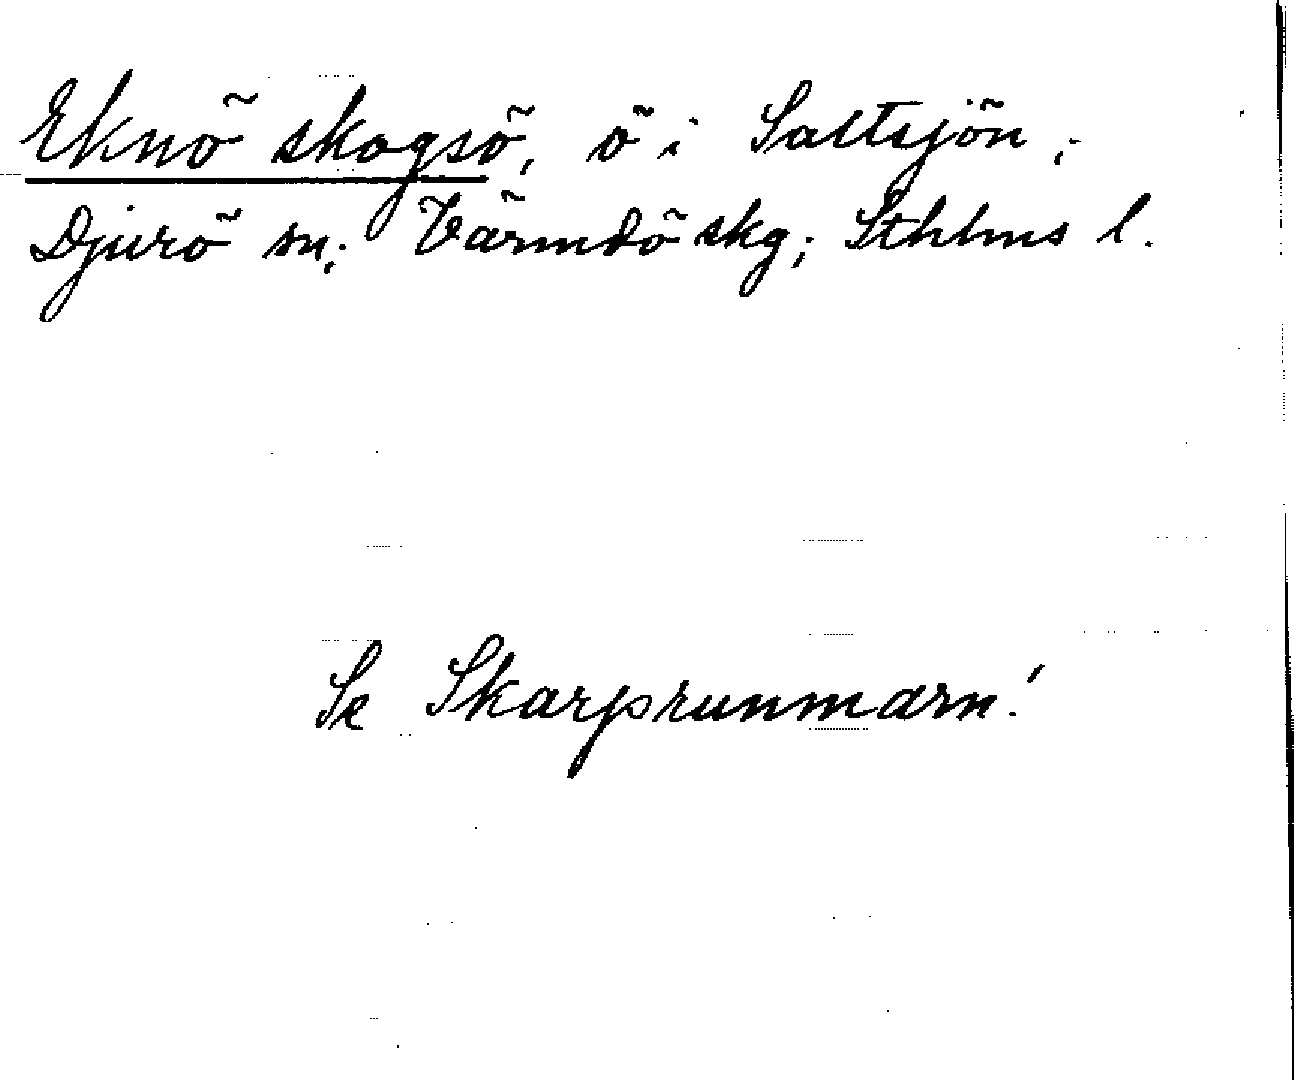 Eknö skogsö, ö i Saltsjön,
Djurö sn; Värmdö skg; Sthlms l.
Se Skarprunmarn!